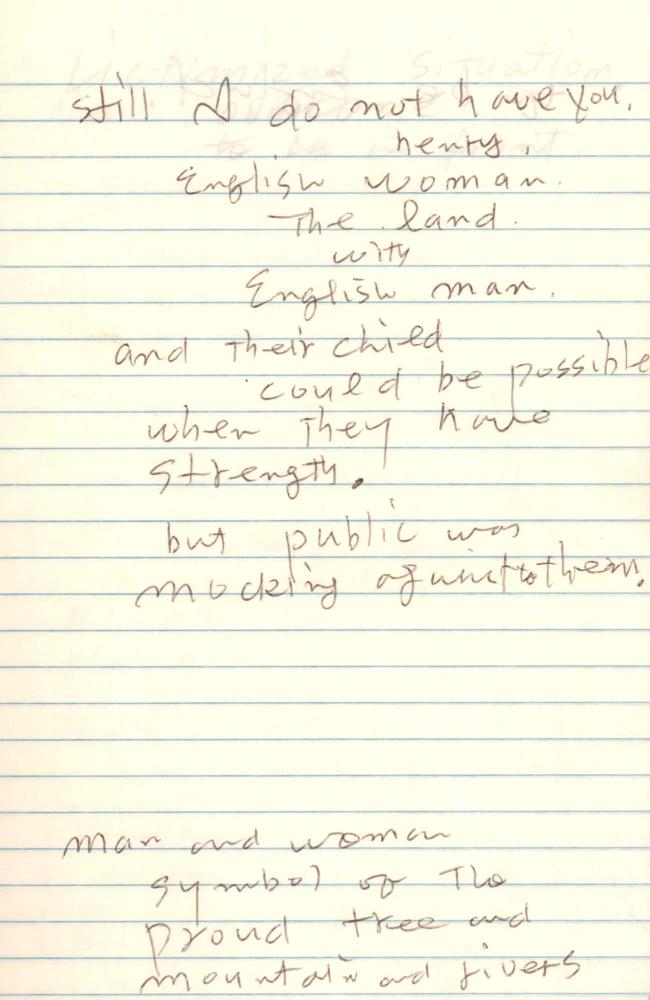 still I do not have you,
henry,
English woman.
The land.
with
English man.
and their child
could be possible
when they have
strength.
but public was
mocking against to them.
man and woman
symbol of The
proud tree and
mountain and rivers